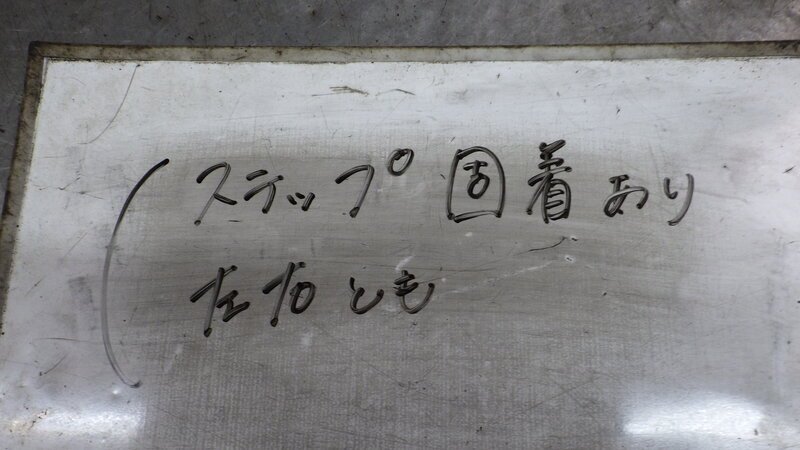 ステップ固着あり
左右とも